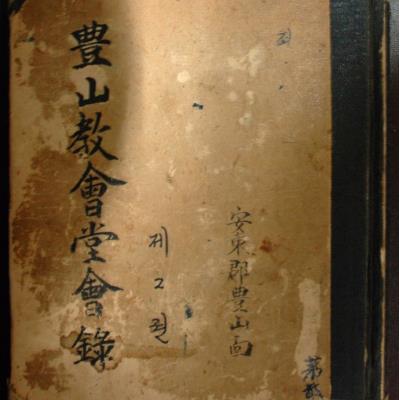 豊山教會堂會錄
제2권
安東郡豊山面